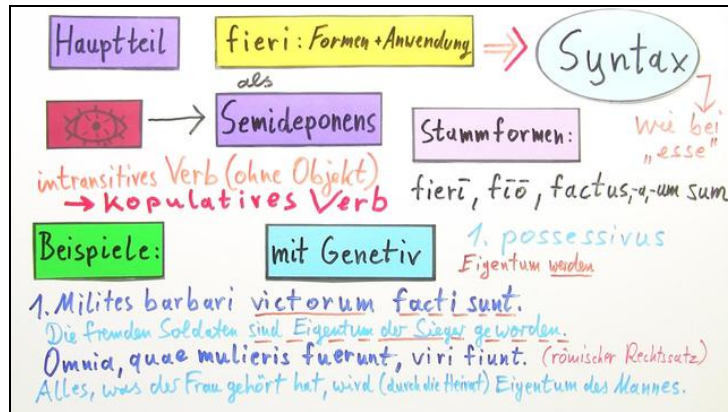 Hauptteil
fieri: Formen + Anwendung
Syntax
als
Semideponens
Stammformen:
wie bei
„esse"
intransitives Verb (ohne Objekt)
→ kopulatives Verb
fierī, fīō, factus,-a,-um sum
Beispiele:
mit Genetiv
1. possessivus
Eigentum werden
1. Milites barbari victorum facti sunt.
Die fremden Soldaten sind Eigentum der Sieger geworden.
Omnia, quae mulieris fuerunt, viri fiunt. (römischer Rechtssatz)
Alles, was der Frau gehört hat, wird (durch die Heirat) Eigentum des Mannes.